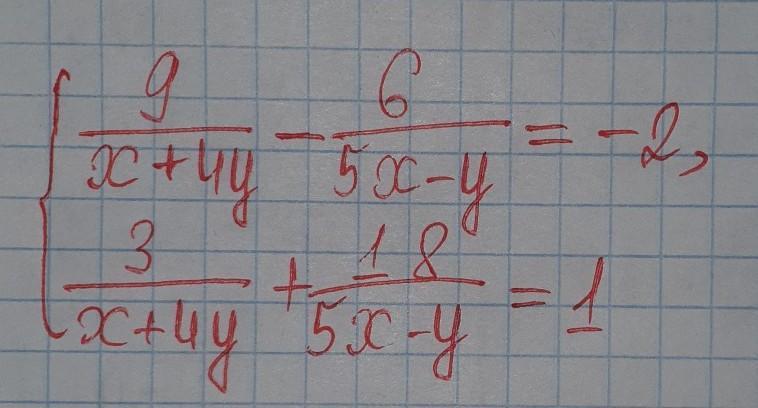 { 9/(x+4y) - 6/(5x-y) = -2,
3/(x+4y) + 18/(5x-y) = 1